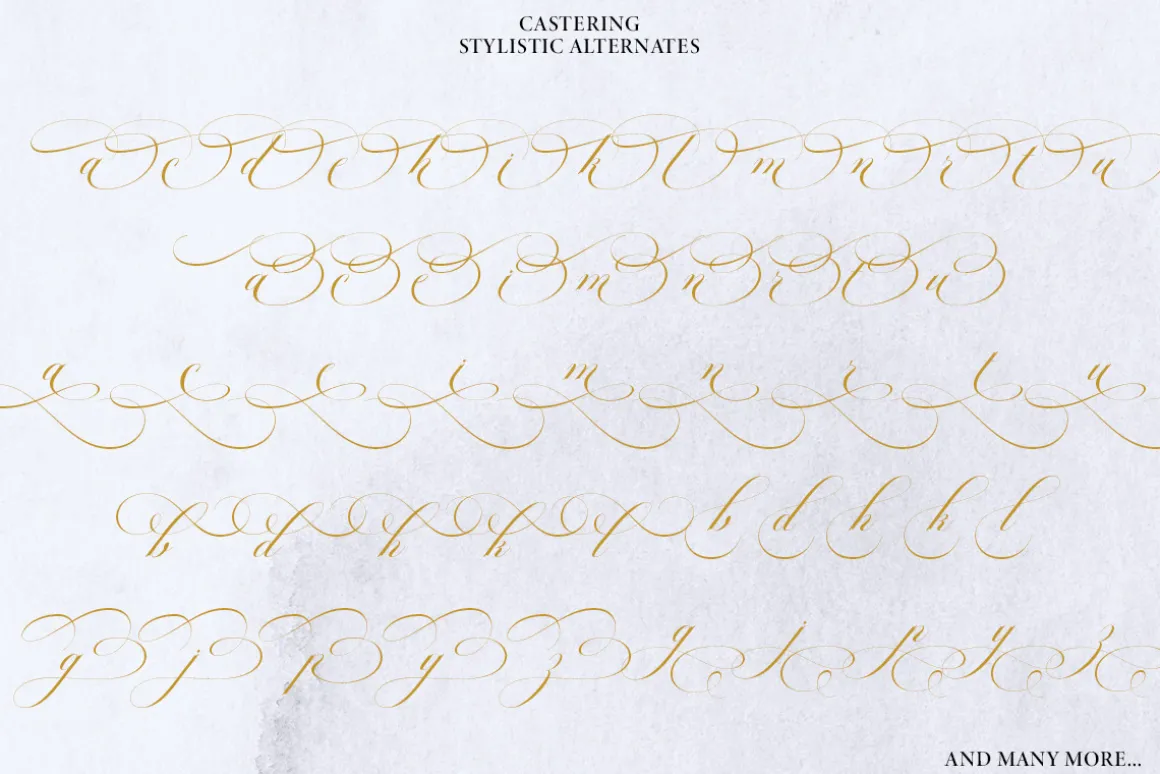 CASTERING
STYLISTIC ALTERNATES
a c d e h i k l m n r t u
a c e i m n r t u
a c c i m n r t u
b d h k l b d h k l
g j p y z g j p y z
AND MANY MORE...